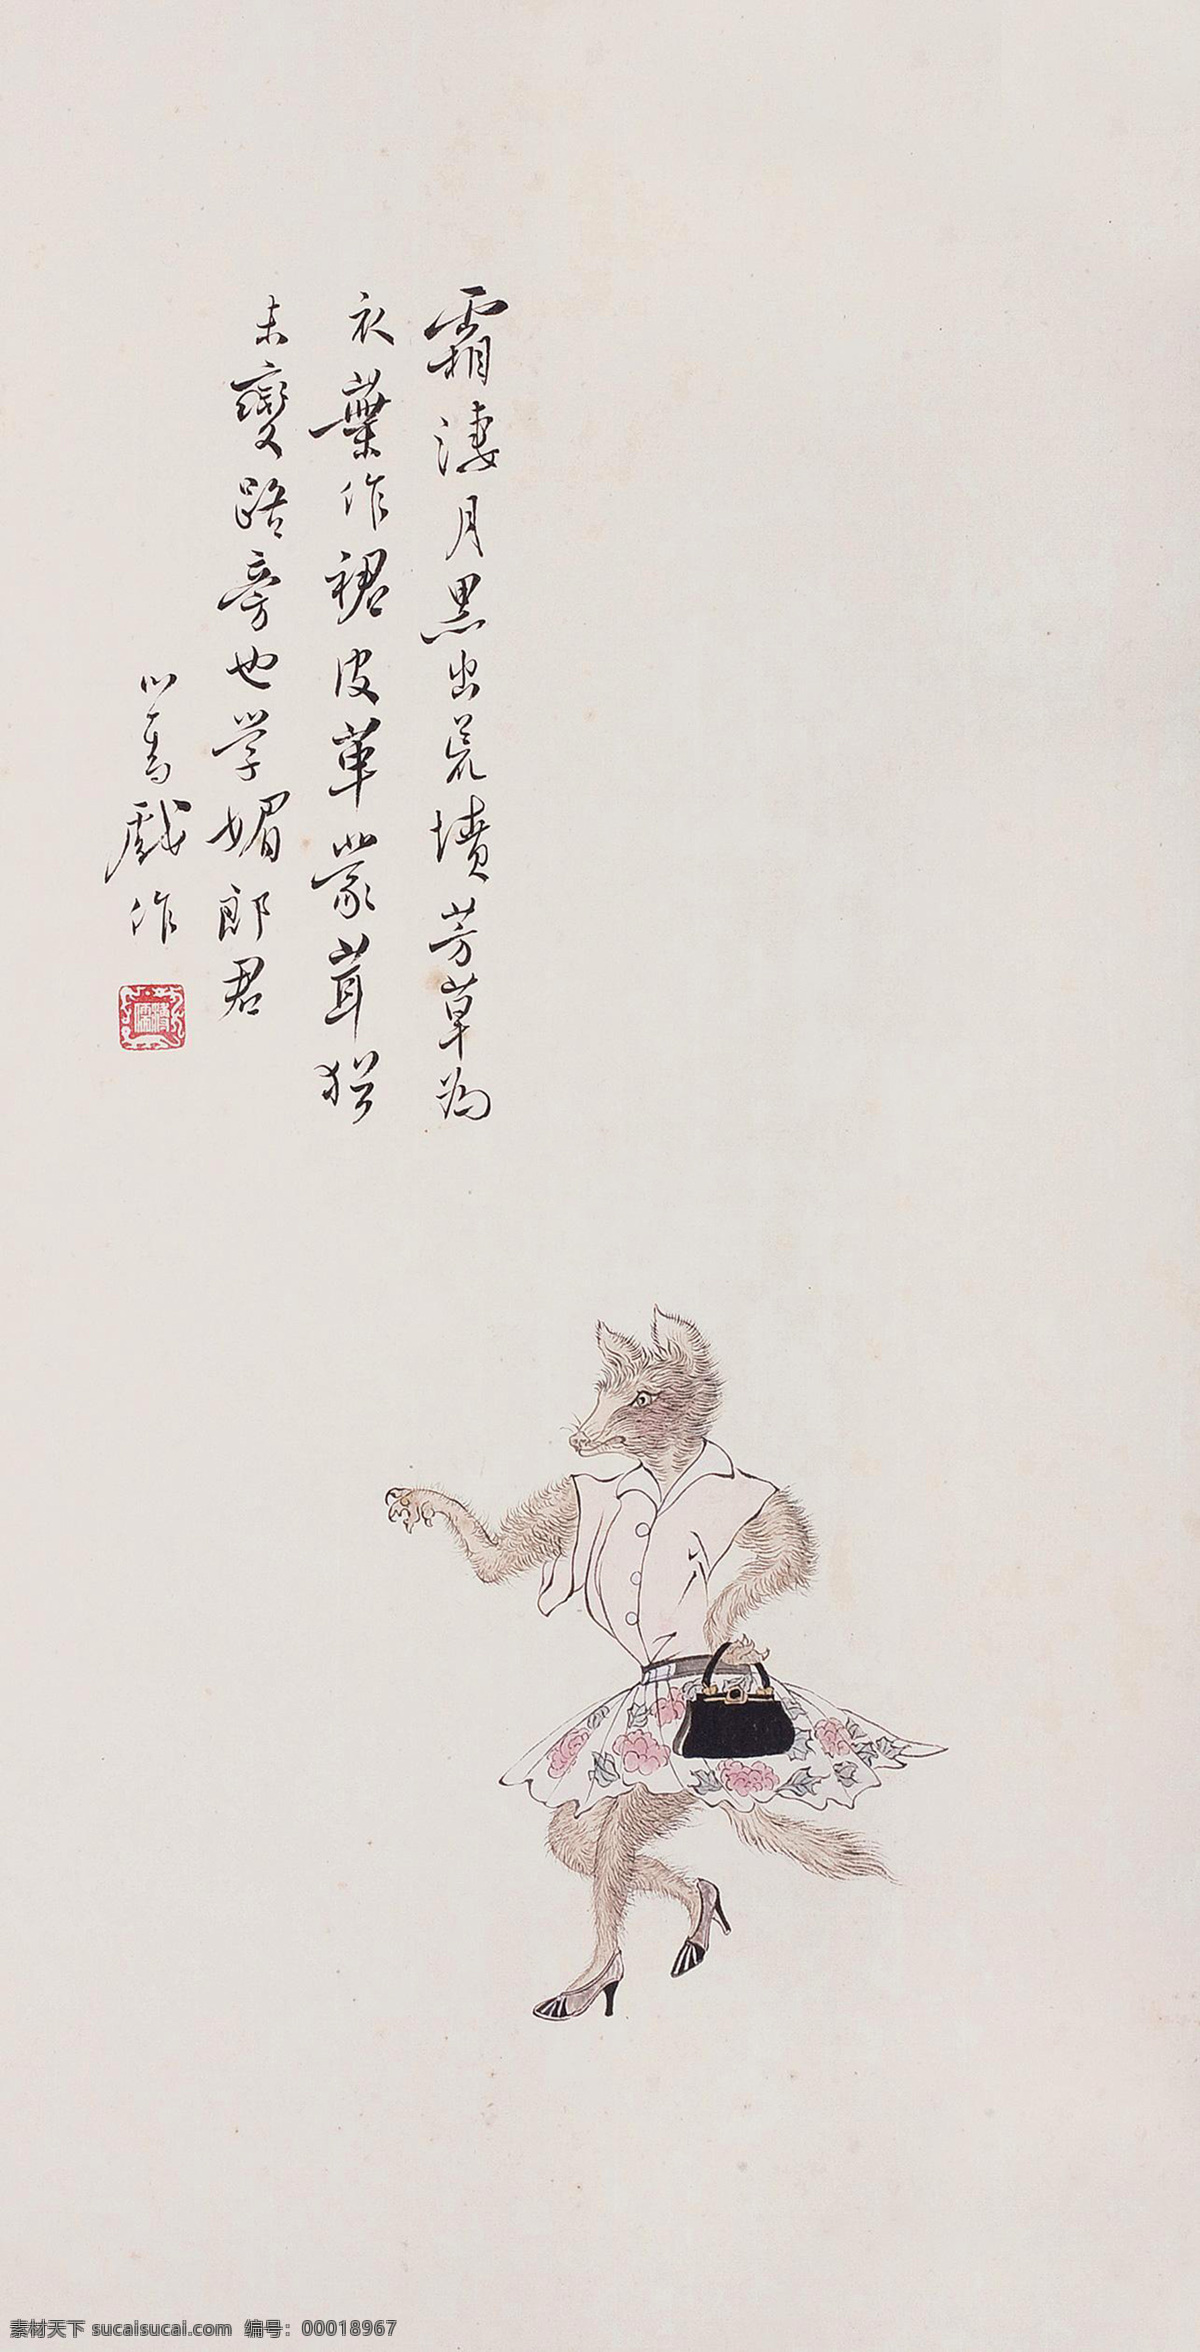 霜淒月黑出荒墳芳草為
衣葉作裙皮革蒙茸猶
未變路旁也学媚郎君
心畬戲作
素材天下 sucaisucai.com 编号：00018967